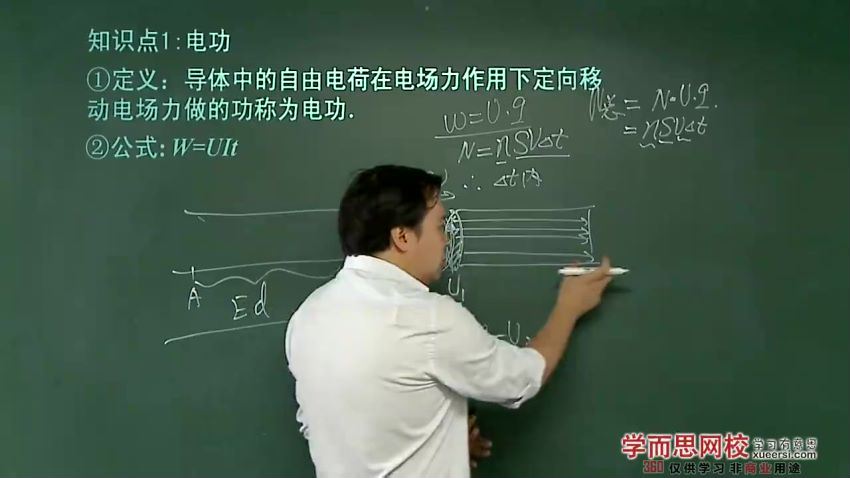 知识点1:电功
①定义：导体中的自由电荷在电场力作用下定向移
动电场力做的功称为电功.
②公式:W=UIt
W=U·q
N=nSVΔt
∴ Δt内
= N·U·q.
=nSVΔt
A
Ed
U₁
=U
学而思网校 学习有意思
xueersi.com
360 仅供学习 非商业用途